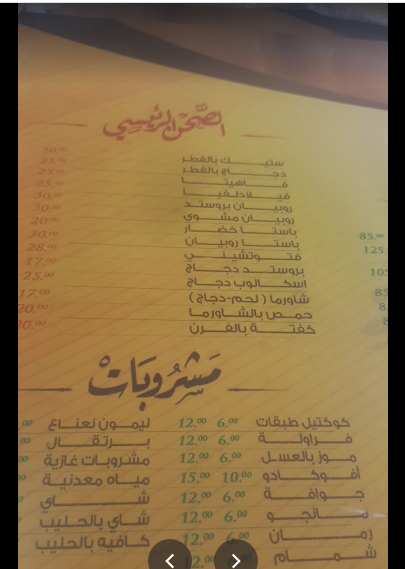 الصحن الرئيسي
ستيك بالفطر 30.00
دجاج بالفطر 25.00
فاهيتا 25.00
فيلادلفيا 25.00
روبيان بروستد 30.00
روبيان مشوي 30.00
باستا خضار 20.00
باستا روبيان 30.00
فتوتشيني 28.00
بروستد دجاج 17.00
اسكالوب دجاج 25.00
شاورما (لحم-دجاج) 17.00
حمص بالشاورما 20.00
كفتة بالفرن 20.00
85.00
125
105
85
مشروبات
كوكتيل طبقات 6.00 12.00
فراولة 6.00 12.00
موز بالعسل 6.00 12.00
أفوكادو 10.00 15.00
جوافة 6.00 12.00
مانجو 6.00 12.00
رمان 6.00 12.00
شمام 12.00
ليمون نعناع
برتقال
مشروبات غازية
مياه معدنية
شاي
شاي بالحليب
كافيه بالحليب